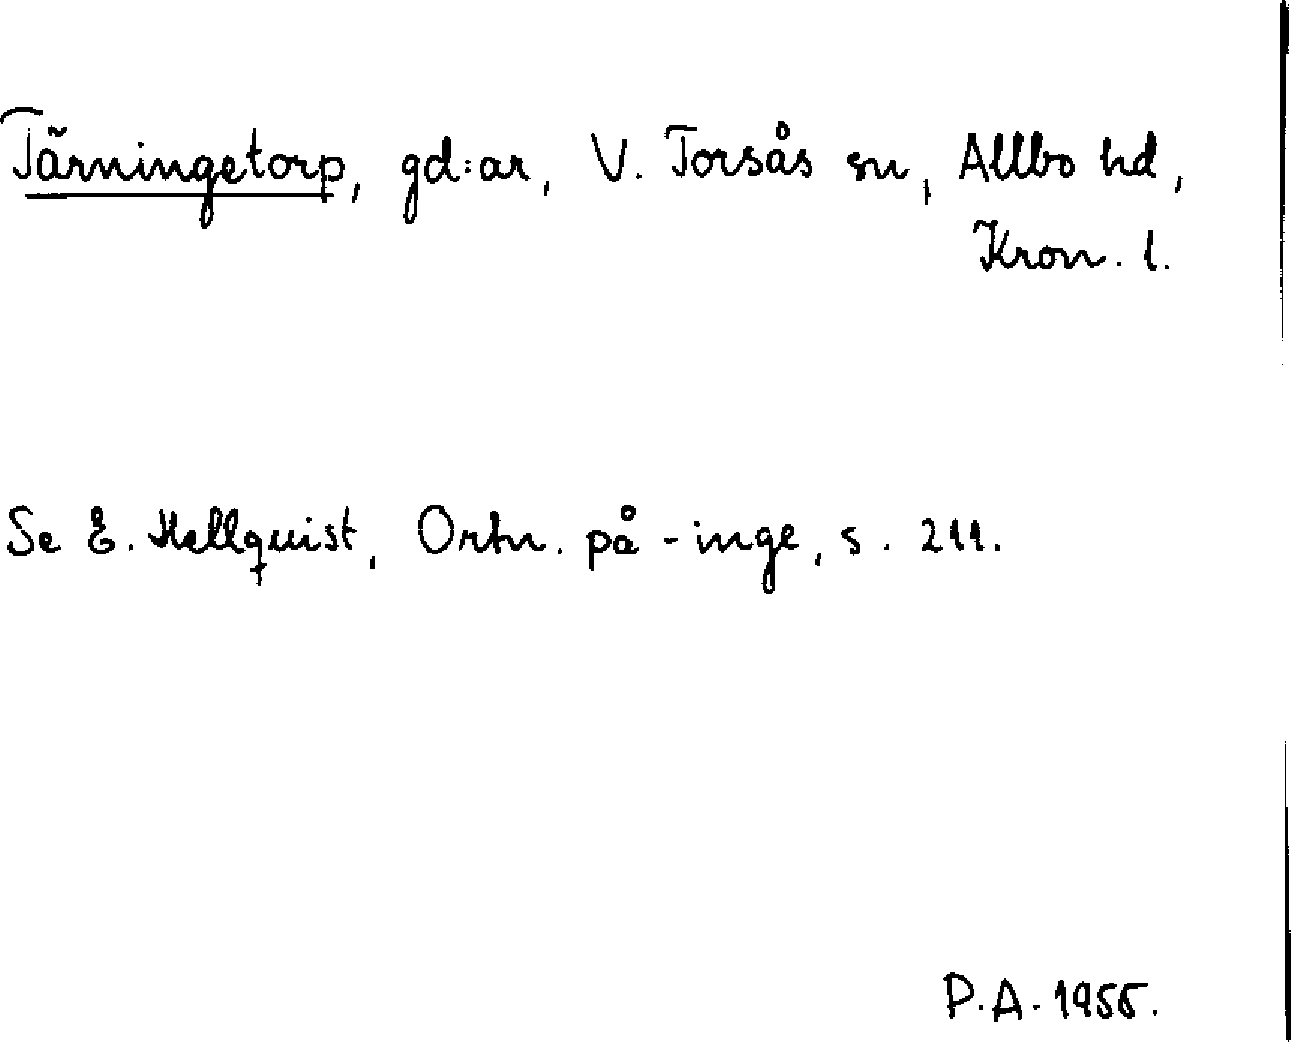 Tärningetorp, gd:ar, V. Torsås sn, Allbo hd,
Kron. l.
Se E. Hellquist, Ortn. på -inge, s. 211.
P.A. 1955.